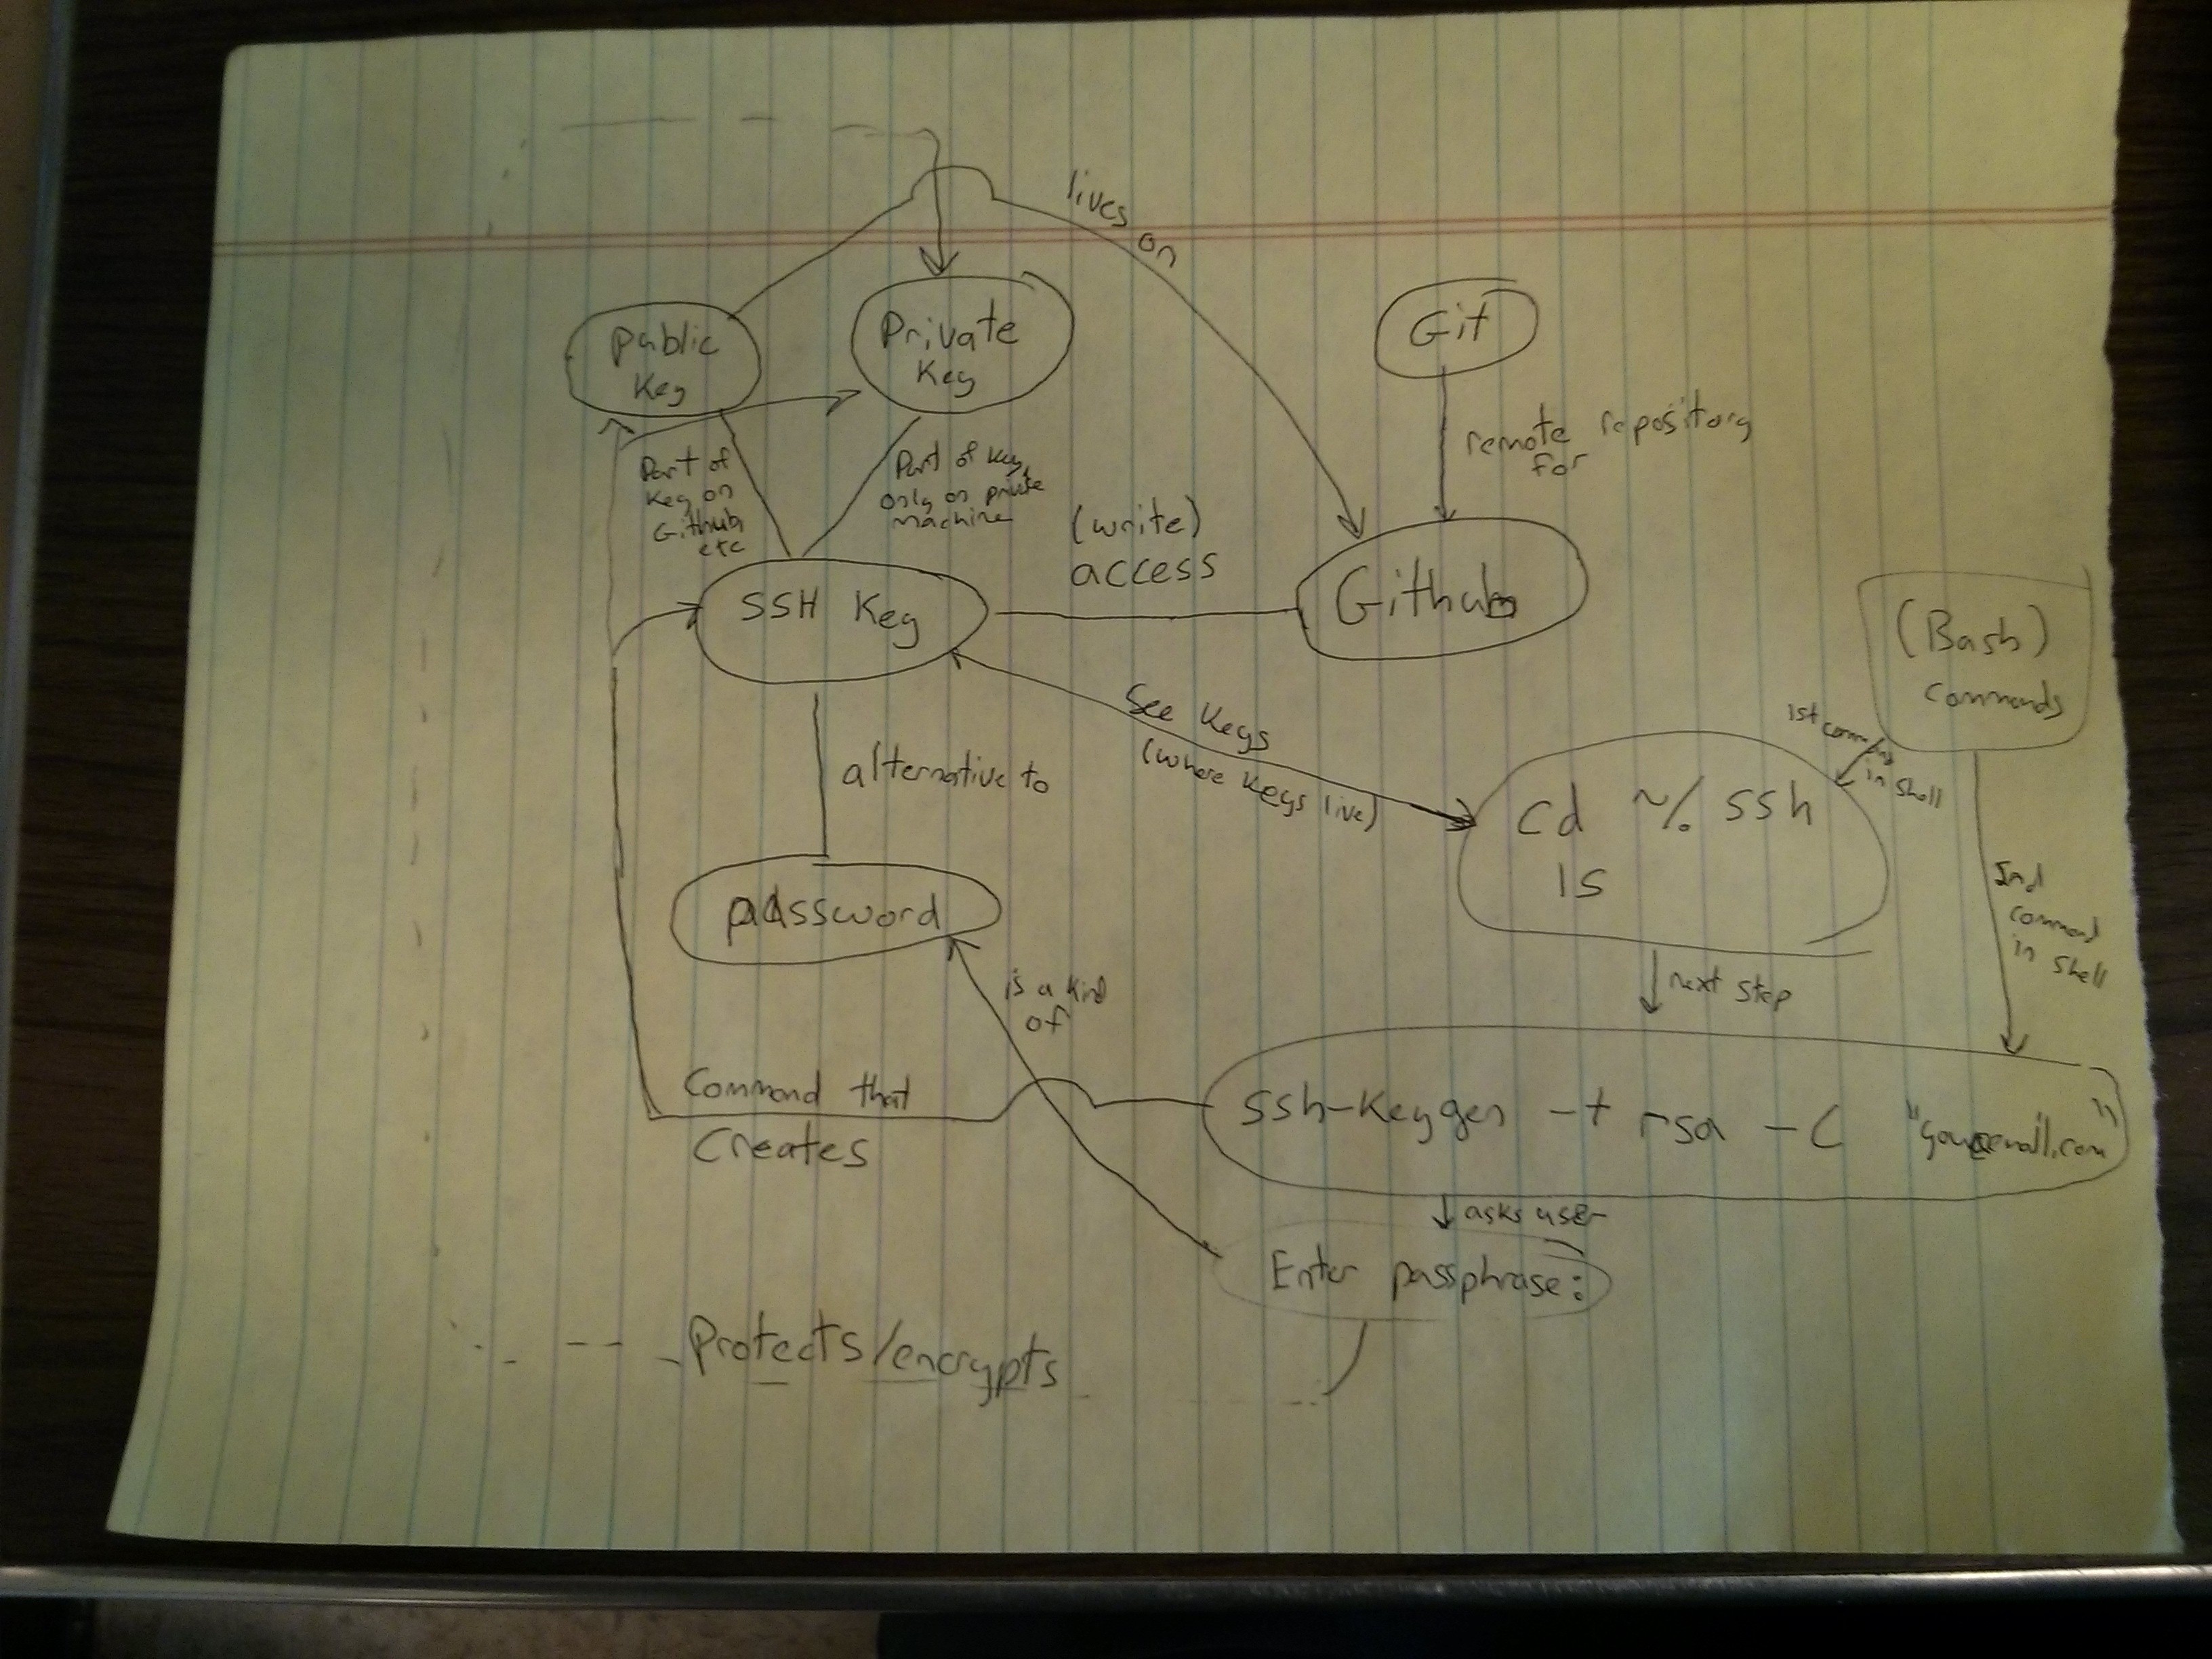 lives
on
Public
Key
Private
Key
Git
remote repository
for
Part of
Key on
Github
etc
Part of Key
only on private
machine
(write)
access
SSH Key
Github
(Bash)
Commands
1st command
in shell
See Keys
(where Keys live)
alternative to
Cd ~/.ssh
ls
2nd
command
in shell
password
is a kind
of
next step
Command that
Creates
ssh-keygen -t rsa -C "you@email.com"
asks user
Enter passphrase:
Protects/encrypts